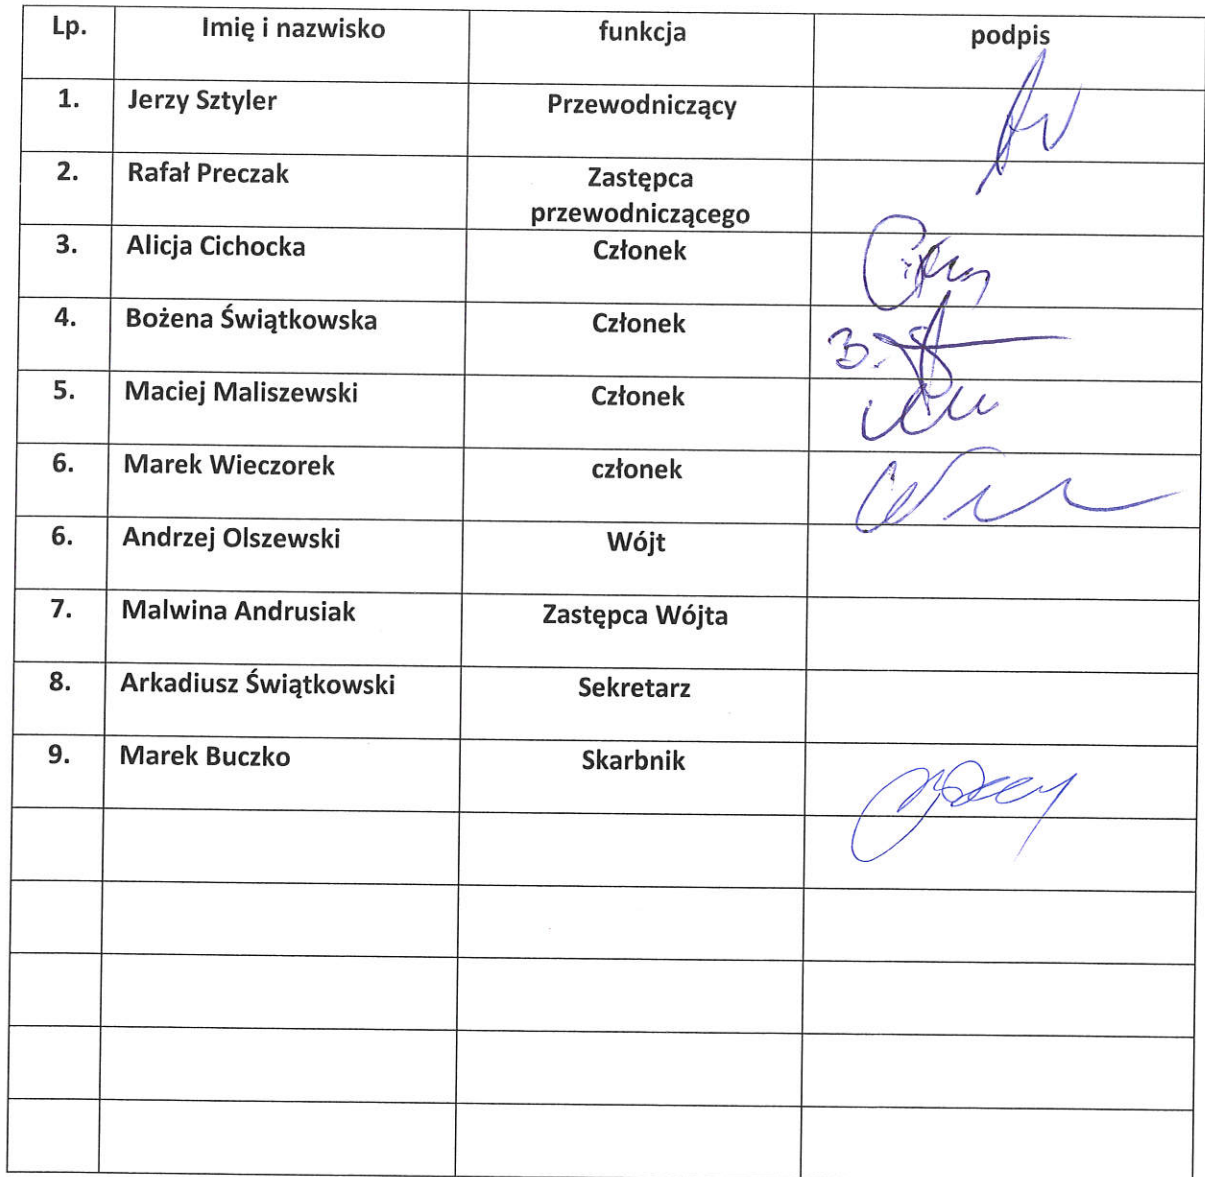 Lp. Imię i nazwisko funkcja podpis
1. Jerzy Sztyler Przewodniczący
2. Rafał Preczak Zastępca
przewodniczącego
3. Alicja Cichocka Członek
4. Bożena Świątkowska Członek
5. Maciej Maliszewski Członek
6. Marek Wieczorek członek
6. Andrzej Olszewski Wójt
7. Malwina Andrusiak Zastępca Wójta
8. Arkadiusz Świątkowski Sekretarz
9. Marek Buczko Skarbnik